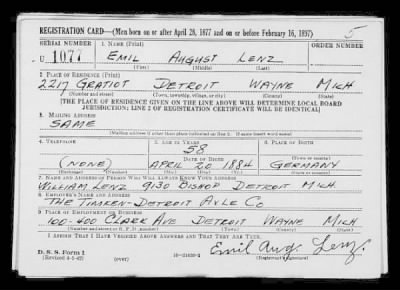 REGISTRATION CARD—(Men born on or after April 28, 1877 and on or before February 16, 1897)
5
SERIAL NUMBER 1. NAME (Print) ORDER NUMBER
U 1077 EMIL AUGUST LENZ
(First) (Middle) (Last)
2. PLACE OF RESIDENCE (Print)
2217 GRATIOT DETROIT WAYNE MICH
(Number and street) (Town, township, village, or city) (County) (State)
[THE PLACE OF RESIDENCE GIVEN ON THE LINE ABOVE WILL DETERMINE LOCAL BOARD
JURISDICTION; LINE 2 OF REGISTRATION CERTIFICATE WILL BE IDENTICAL]
3. MAILING ADDRESS
SAME
[Mailing address if other than place indicated on line 2. If same insert word same]
4. TELEPHONE 5. AGE IN YEARS 6. PLACE OF BIRTH
58
DATE OF BIRTH (Town or county)
(NONE) APRIL 20 1884 GERMANY
(Exchange) (Number) (Mo.) (Day) (Yr.) (State or country)
7. NAME AND ADDRESS OF PERSON WHO WILL ALWAYS KNOW YOUR ADDRESS
WILLIAM LENZ 9130 BISHOP DETROIT MICH.
8. EMPLOYER'S NAME AND ADDRESS
THE TIMKEN-DETROIT AXLE CO
9. PLACE OF EMPLOYMENT OR BUSINESS
100-400 CLARK AVE DETROIT WAYNE MICH
(Number and street or R. F. D. number) (Town) (County) (State)
I AFFIRM THAT I HAVE VERIFIED ABOVE ANSWERS AND THAT THEY ARE TRUE.
D. S. S. Form 1
(Revised 4-1-42) (over) Emil Aug. Lenz.
(Registrant's signature)